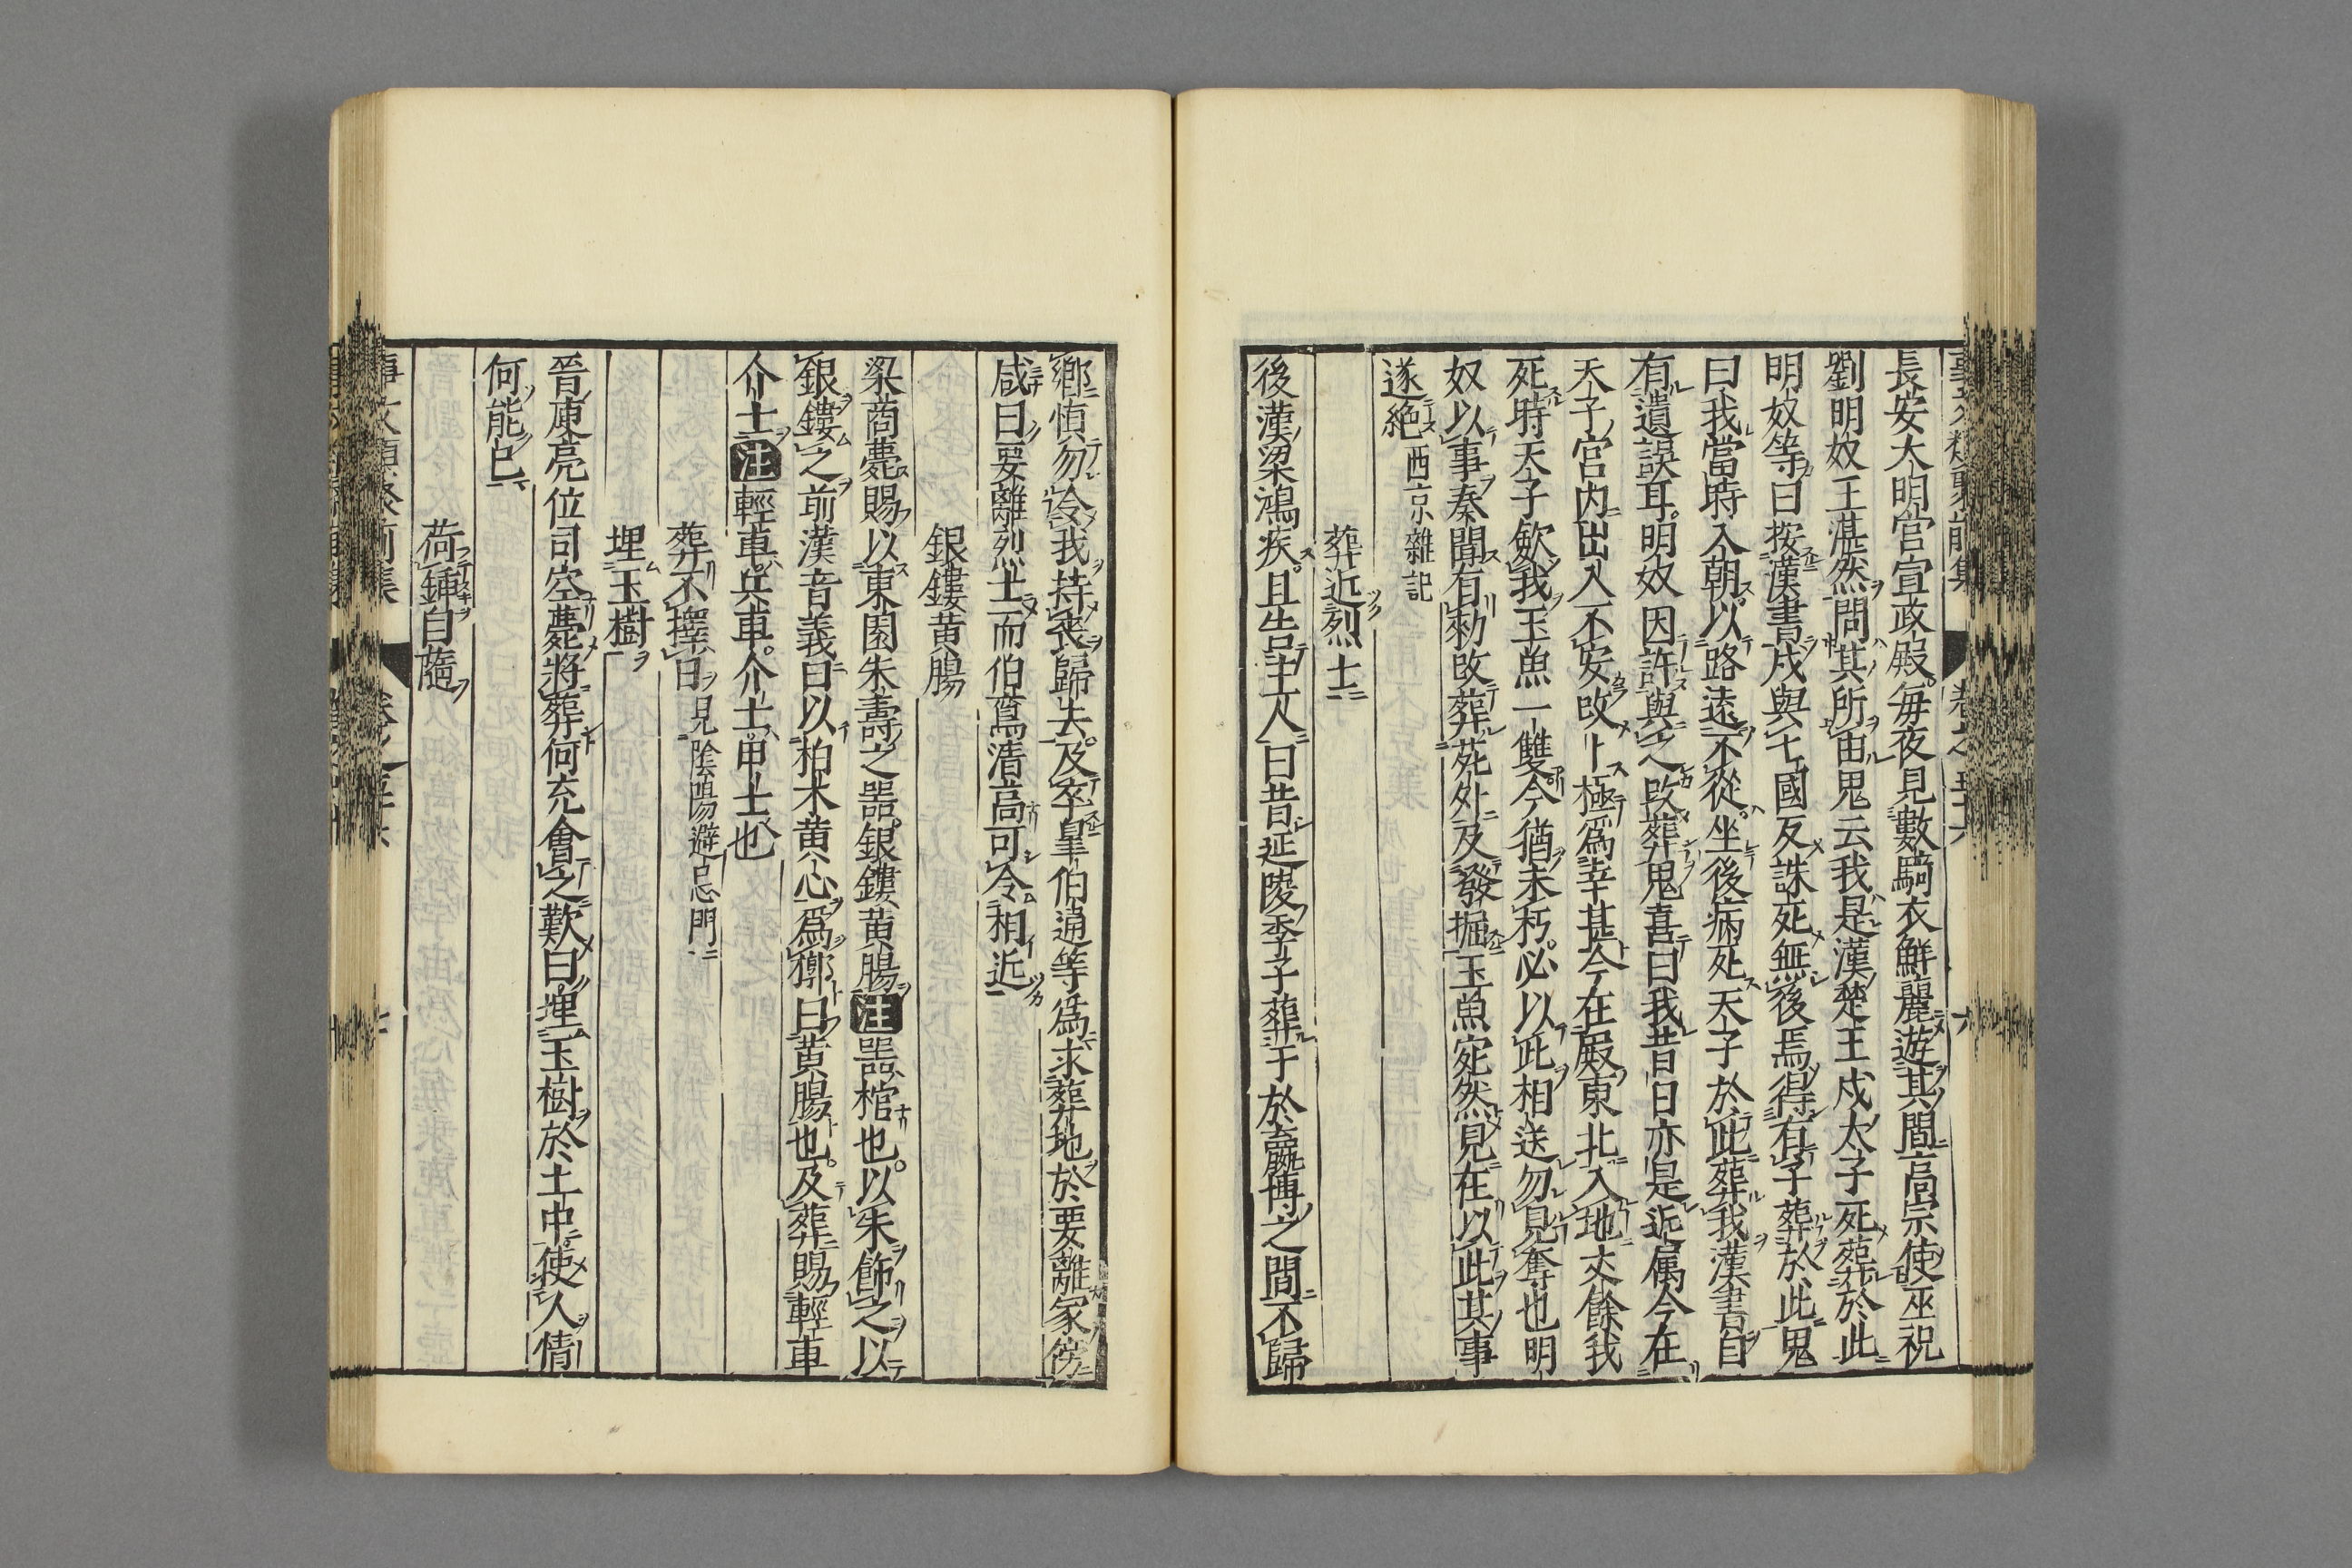 長安大明宮宣政殿毎夜見數騎衣鮮麗遊其間高宗使巫祝
劉明奴王湛然問其所由鬼云我是漢楚王戊太子死葬於此
明奴等曰按漢書戊與七國反誅死無後焉得有子葬於此鬼
曰我當時入朝以路遠不從坐後病死天子於此葬我漢書自
有遺誤耳明奴因許與之改葬鬼喜曰我昔日亦是近属今在
天子宮内出入不安改卜極爲幸甚今在殿東北入地丈餘我
死時天子歛我玉魚一雙今猶未朽必以此相送勿見奪也明
奴以事奏聞有勅改葬苑外及發掘玉魚宛然見在以此其事
遂絶西京雜記
葬近烈士
後漢梁鴻疾且告主人曰昔延陵季子葬于於嬴博之間不歸
鄉慎勿令我持喪歸去及卒皐伯通等爲求葬地於要離冢傍
咸曰要離烈士而伯鸞清高可令相近
銀鏤黄腸
梁商薨賜以東園朱壽之器銀鏤黄腸注器棺也以朱飾之以
銀鏤之前漢音義曰以柏木黄心爲槨曰黄腸也及葬賜輕車
介士注輕車兵車介士甲士也
葬不擇日見陰陽避忌門
埋玉樹
晉庾亮位司空薨將葬何充會之歎曰埋玉樹於土中使人情
何能已
荷鍤自隨